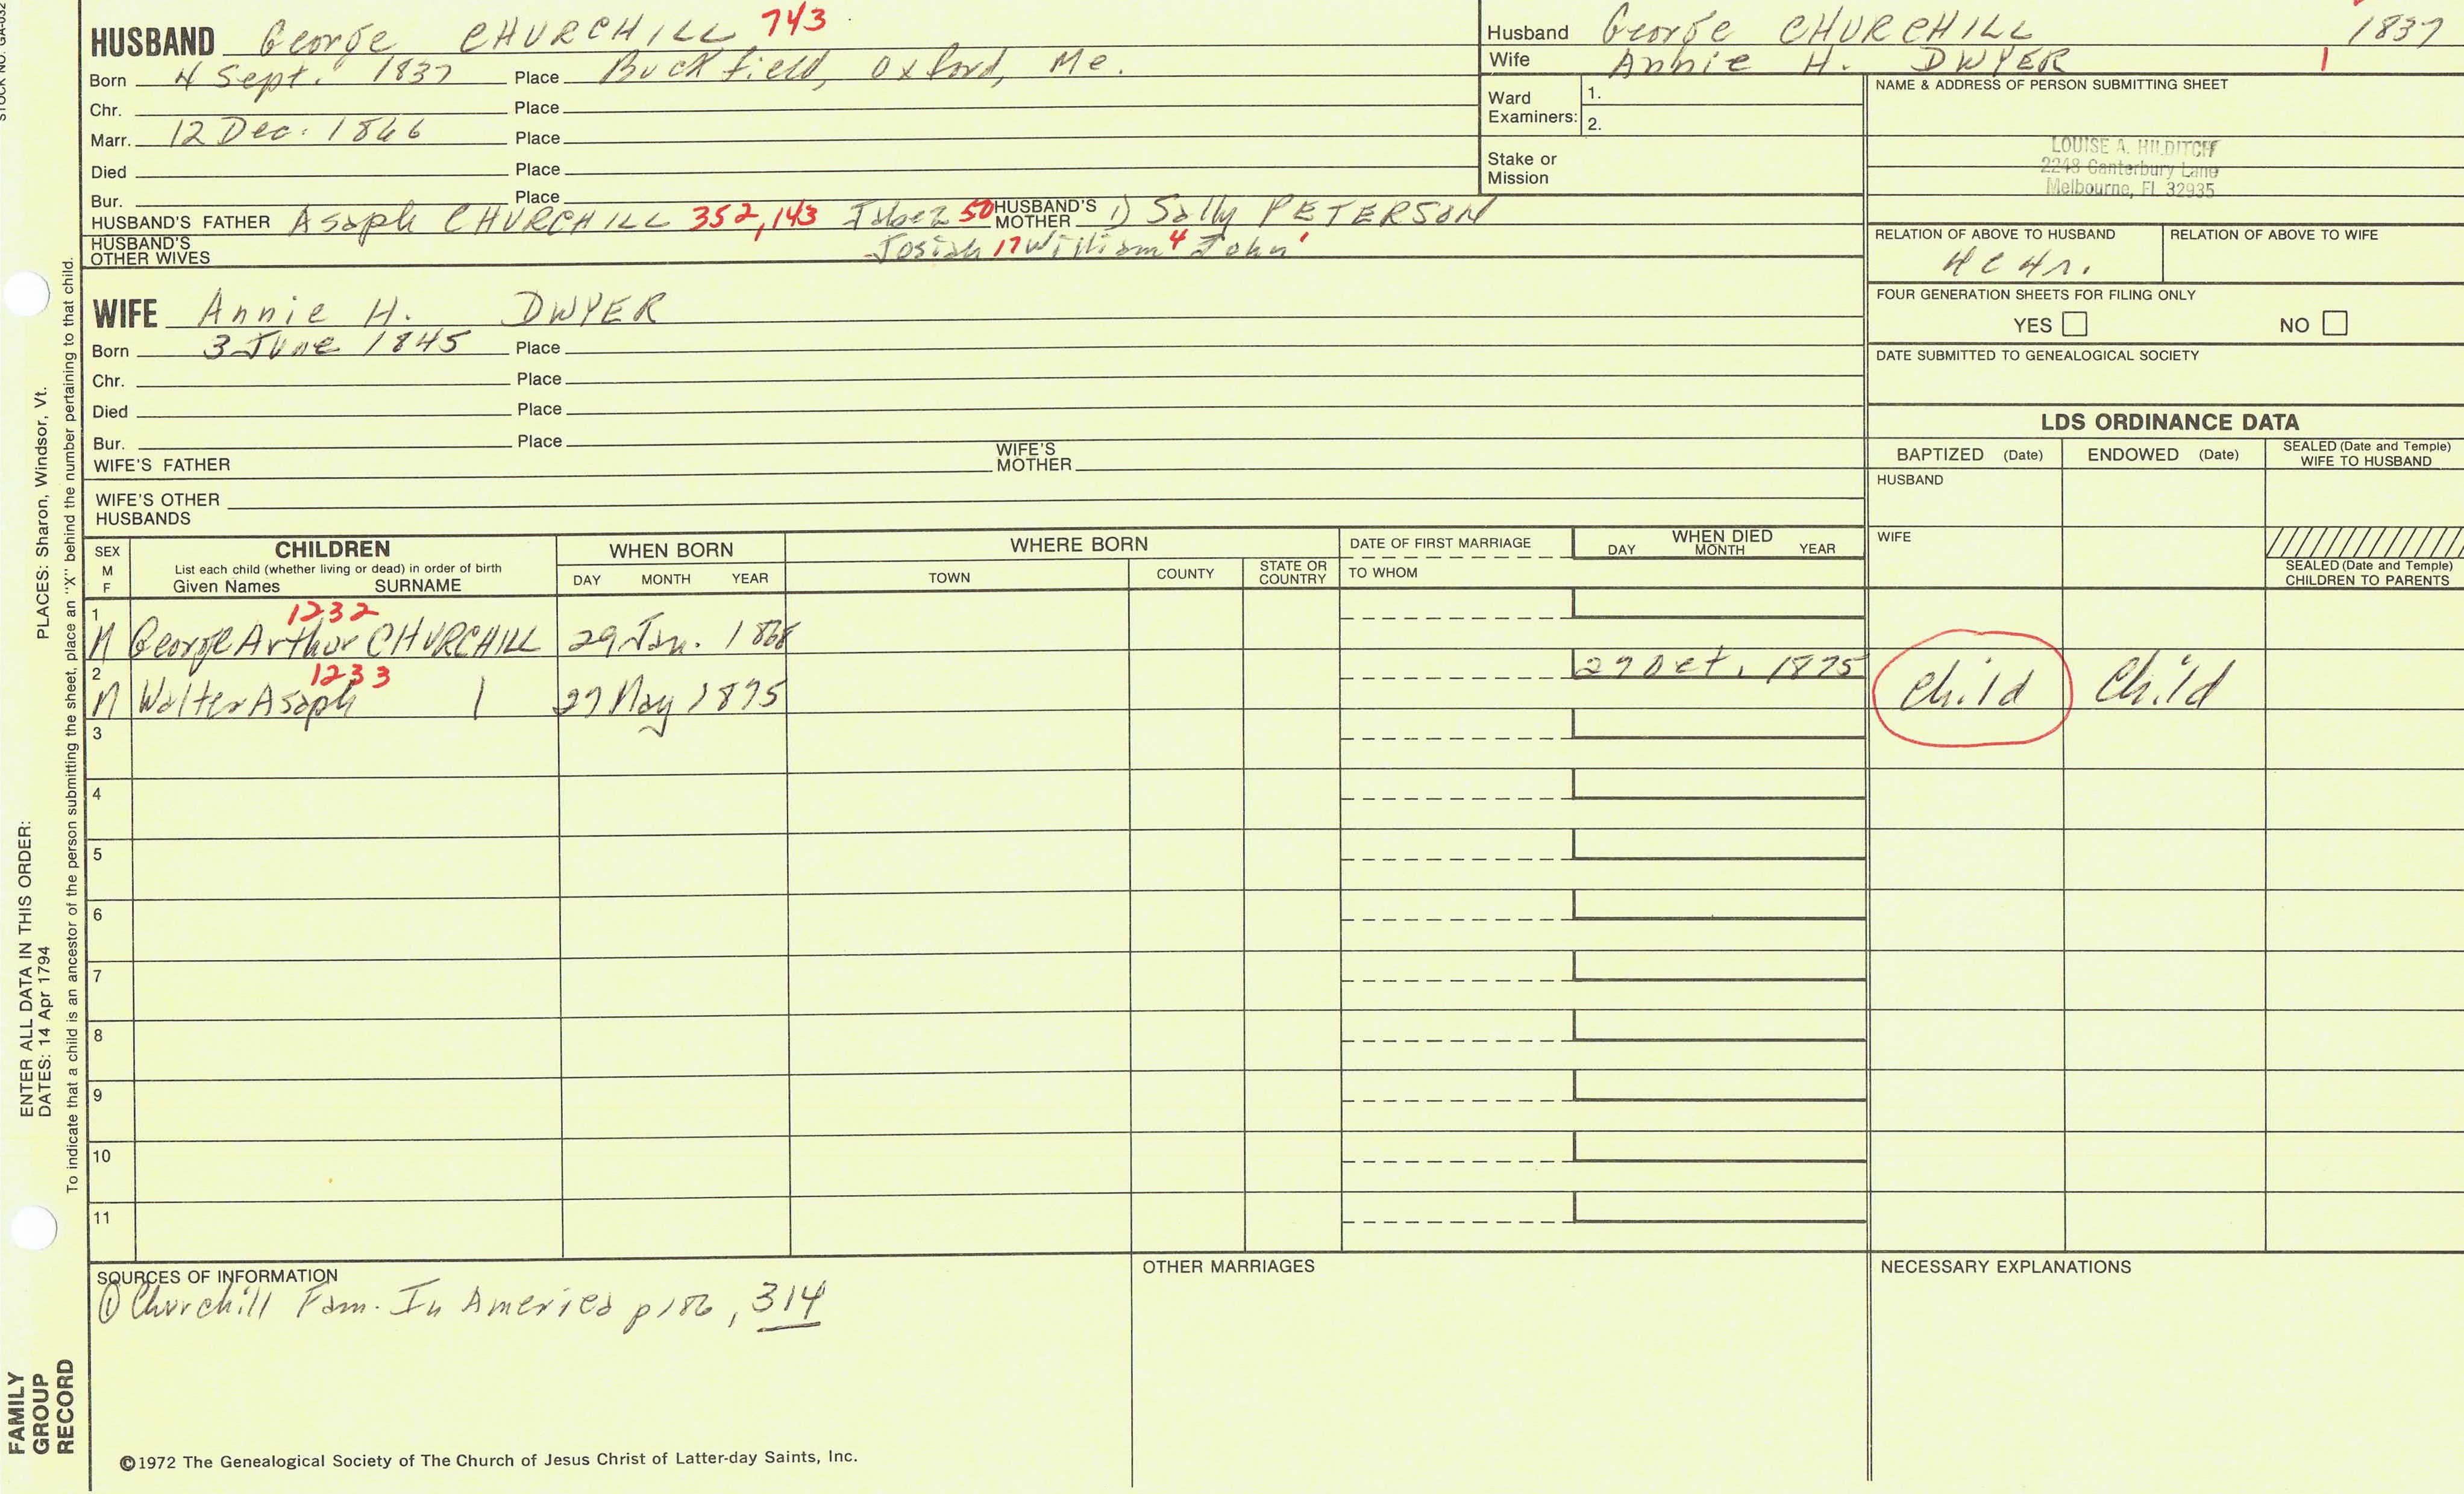 HUSBAND George CHURCHILL 743
Born 4 Sept. 1837 Place Buckfield, Oxford, Me.
Chr. Place
Marr. 12 Dec. 1866 Place
Died Place
Bur. Place
HUSBAND'S FATHER Asaph CHURCHILL 352, 143 Jabez 50 HUSBAND'S MOTHER 1) Sally PETERSON
HUSBAND'S OTHER WIVES Josiah 17 William 4 John 1
Husband George CHURCHILL 1837
Wife Annie H. DWYER 1
Ward Examiners: 1.
2.
Stake or Mission
NAME & ADDRESS OF PERSON SUBMITTING SHEET
LOUISE A. HILDITCH
2248 Canterbury Lane
Melbourne, FL 32935
RELATION OF ABOVE TO HUSBAND RELATION OF ABOVE TO WIFE
4C4r.
FOUR GENERATION SHEETS FOR FILING ONLY
YES NO
DATE SUBMITTED TO GENEALOGICAL SOCIETY
WIFE Annie H. DWYER
Born 3 June 1845 Place
Chr. Place
Died Place
Bur. Place
WIFE'S FATHER WIFE'S MOTHER
WIFE'S OTHER HUSBANDS
LDS ORDINANCE DATA
BAPTIZED (Date) ENDOWED (Date) SEALED (Date and Temple) WIFE TO HUSBAND
HUSBAND
WIFE
SEALED (Date and Temple) CHILDREN TO PARENTS
SEX M F
CHILDREN
List each child (whether living or dead) in order of birth
Given Names SURNAME
WHEN BORN
DAY MONTH YEAR
WHERE BORN
TOWN COUNTY STATE OR COUNTRY
DATE OF FIRST MARRIAGE
TO WHOM
WHEN DIED
DAY MONTH YEAR
1 1232
M George Arthur CHURCHILL 29 Jan. 1868
2 1233 27 Oct. 1875
M Walter Asaph | 27 May 1875 Child Child
3
4
5
6
7
8
9
10
11
SOURCES OF INFORMATION
① Churchill Fam. In America p186, 314
OTHER MARRIAGES
NECESSARY EXPLANATIONS
©1972 The Genealogical Society of The Church of Jesus Christ of Latter-day Saints, Inc.
FAMILY GROUP RECORD
ENTER ALL DATA IN THIS ORDER:
DATES: 14 Apr 1794
PLACES: Sharon, Windsor, Vt.
To indicate that a child is an ancestor of the person submitting the sheet, place an "X" behind the number pertaining to that child.